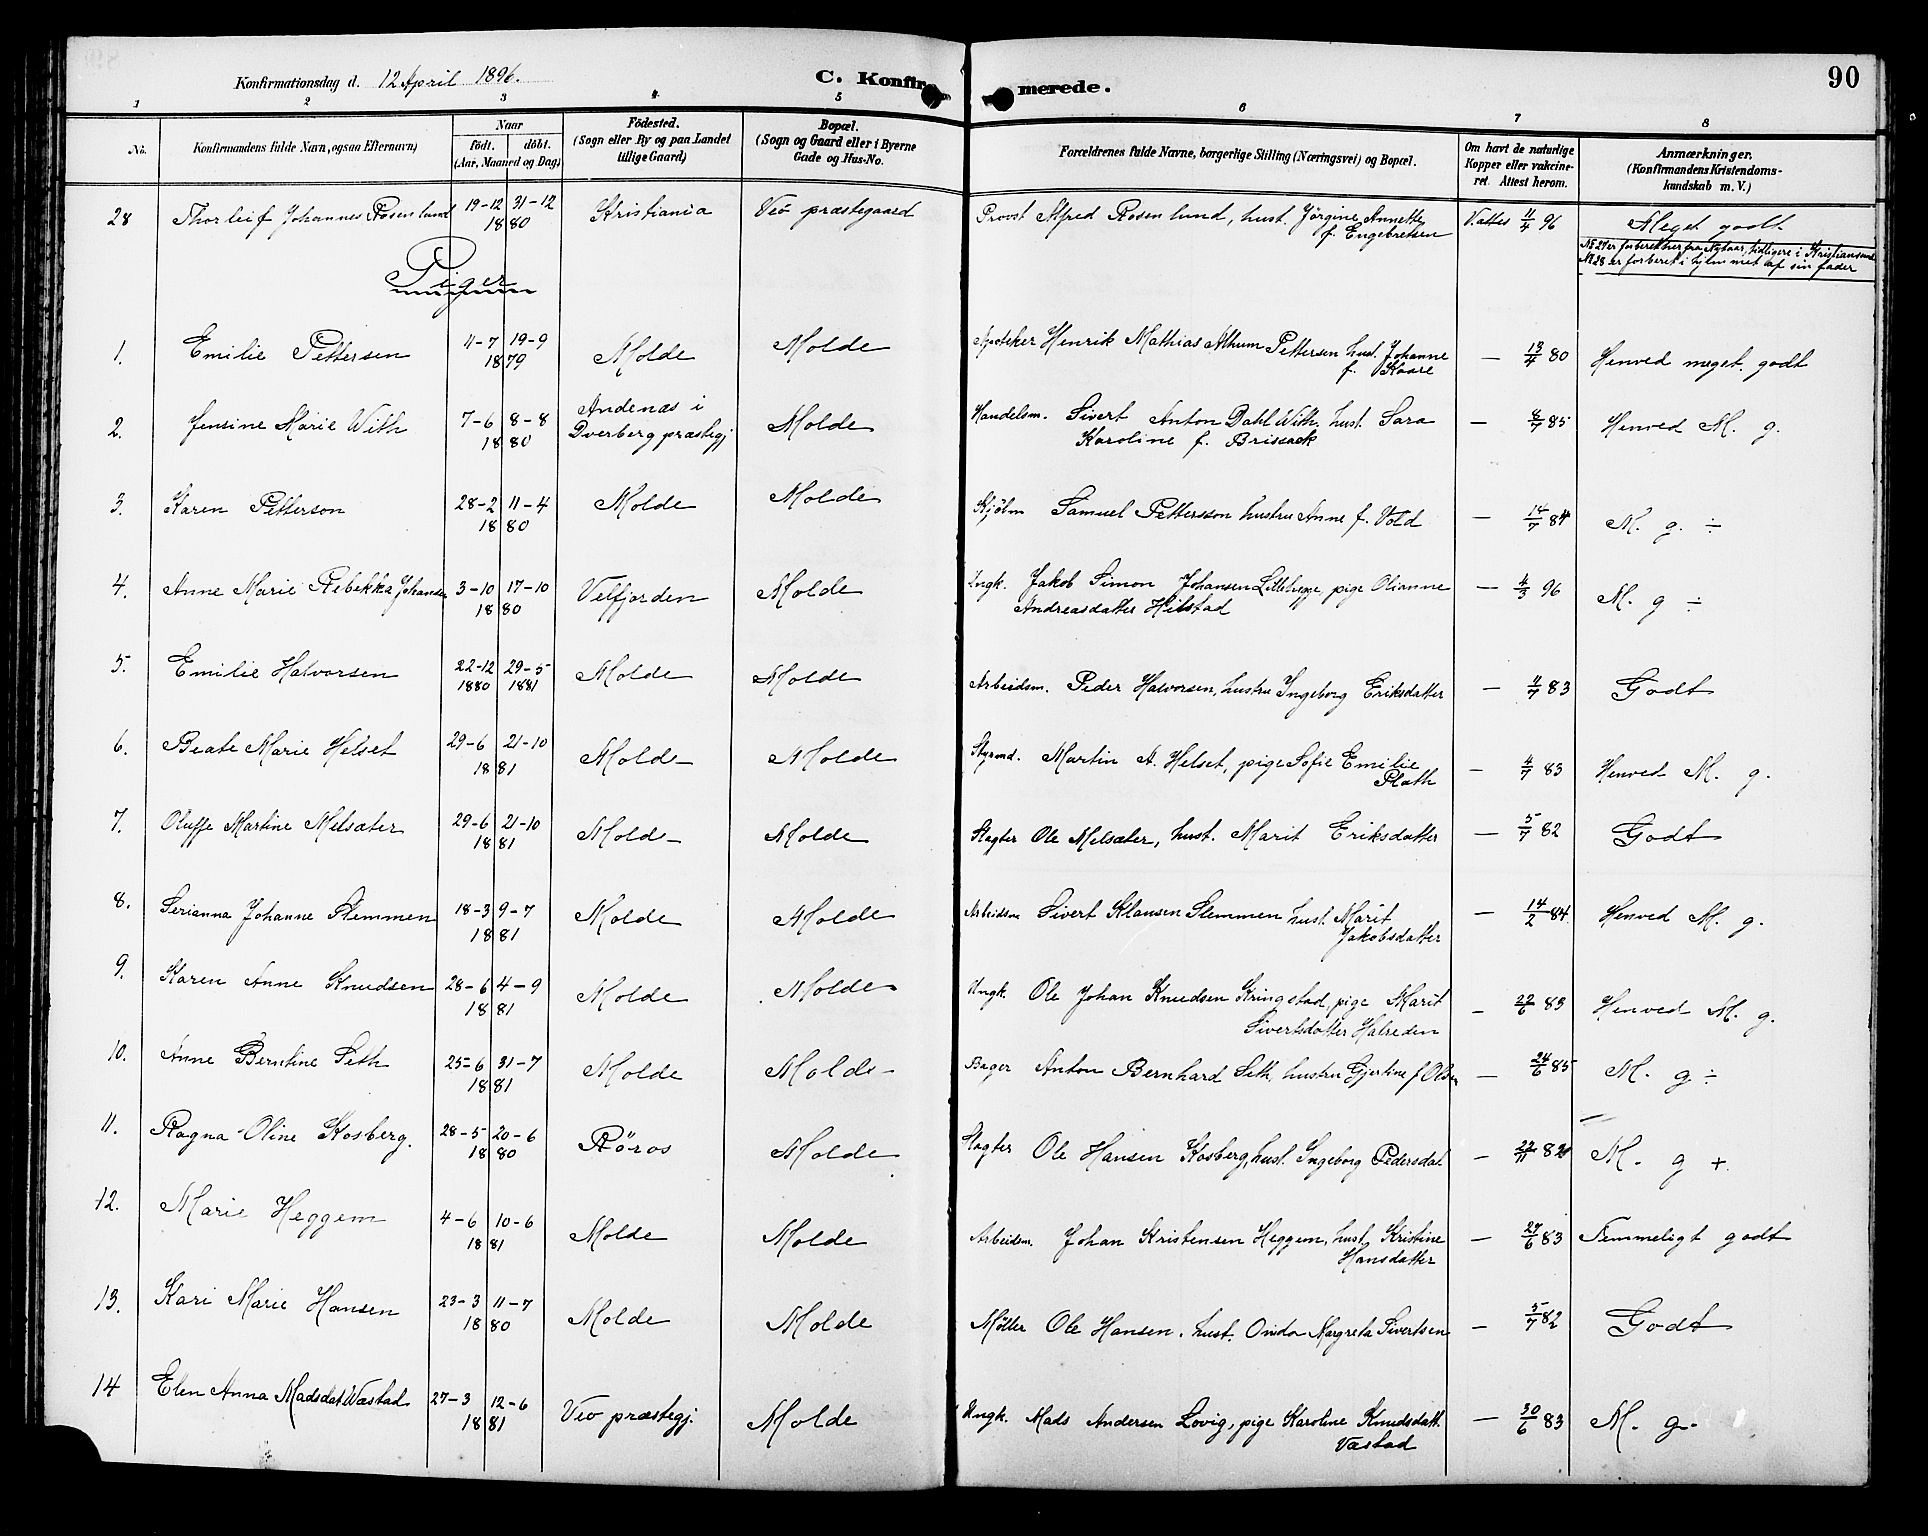 90
Konfirmationsdag d. 12 April 1896.
C. Konfirmerede.
1 2 3 4 5 6 7 8
No.
Konfirmandens fulde Navn, ogsaa Efternavn)
Naar
født. døbt.
(Aar, Maaned og Dag)
Födested.
(Sogn eller By og paa Landet
tillige Gaard)
Bopæl.
(Sogn og Gaard eller i Byerne
Gade og Hus-No.
Forældrenes fulde Navne, borgerlige Stilling (Næringsvei) og Bopæl.
Om havt de naturlige
Kopper eller vakcine-
ret. Attest herom.
Anmærkninger.
(Konfirmandens Kristendoms-
kundskab m. V.)
28 Thorleif Johannes Rosenlund 19-12 31-12 1880 Kristiania Veö præstegaard Provst Alfred Rosenlund, hust. Jörgine Annette f. Engebretsen Vattes 11/4 96 Meget godt
No 28 er forberet i hjemmet af sin fader
Piger
1. Emilie Pettersen 4-7 19-9 1879 Molde Molde Apoteker Henrik Mathias Althum Pettersen hust. Johanne f. Kaare — 13/4 80 Henved meget godt
2. Jensine Marie With 7-6 8-8 1880 Andenæs i Dverberg præstegj Molde Handelsm. Sivert Anton Dahl With, hust. Sara Karoline f. Brissack — 8/7 85 Henved M. g.
3. Karen Petterson 28-2 11-4 1880 Molde Molde Kjöbm Samuel Pettersson hustru Anne f. Vold — 14/7 84 M. g. ÷
4. Anne Marie Rebekka Johansen 3-10 17-10 1880 Velfjorden Molde Ungk. Jakob Simon Johansen Lillehegge, pige Olianne Andreasdatter Hilstad — 4/3 96 M. g ÷
5. Emilie Halvorsen 22-12 1880 29-5 1881 Molde Molde Arbeidsm. Peder Halvorsen, hustru Ingeborg Eriksdatter — 11/7 83 Godt
6. Beate Marie Helset 29-6 21-10 1881 Molde Molde Styrmd. Martin A. Helset, pige Sofie Emilie Plath — 4/7 83 Henved M. g.
7. Oluffe Martine Melsæter 29-6 21-10 1881 Molde Molde Slagter Ole Melsæter, hust. Marit Eriksdatter — 5/7 82 Godt
8. Serianna Johanne Slemmen 18-3 9-7 1881 Molde Molde Arbeidsm Sivert Klausen Slemmen hust. Marit Jakobsdatter — 14/2 84. Henved M. g.
9. Karen Anne Knudsen 28-6 4-9 1881 Molde Molde Ungk. Ole Johan Knudsen Kringstad, pige Marit Sivertsdatter Hatreden — 22/6 83 Henved M. g.
10. Anne Berntine Seth 25-6 31-7 1881 Molde Molde Bager Anton Bernhard Seth, hustru Gjertine f Olsen — 24/6 85 M. g ÷
11. Ragna Oline Kosberg. 28-5 20-6 1880 Röros Molde Slagter Ole Hansen Kosberg, hust. Ingeborg Pedersdat. — 22/11 82 M. g +.
12. Marie Heggem 4-6 10-6 1881 Molde Molde Arbeidsm. Johan Kristensen Heggem, hust. Kristine Hansdatter — 27/6 83 Temmeligt godt
13. Kari Marie Hansen 23-3 11-7 1880 Molde Molde Møller Ole Hansen, hust. Onida Margreta Sivertsen — 5/7 82 Godt
14 Elen Anna Madsdat Wæstad 27-3 12-6 1881 Veö præstegj. Molde Ungk. Mads Andersen Lovig, pige Karoline Knudsdatt. Væstad — 30/6 83 M. g.